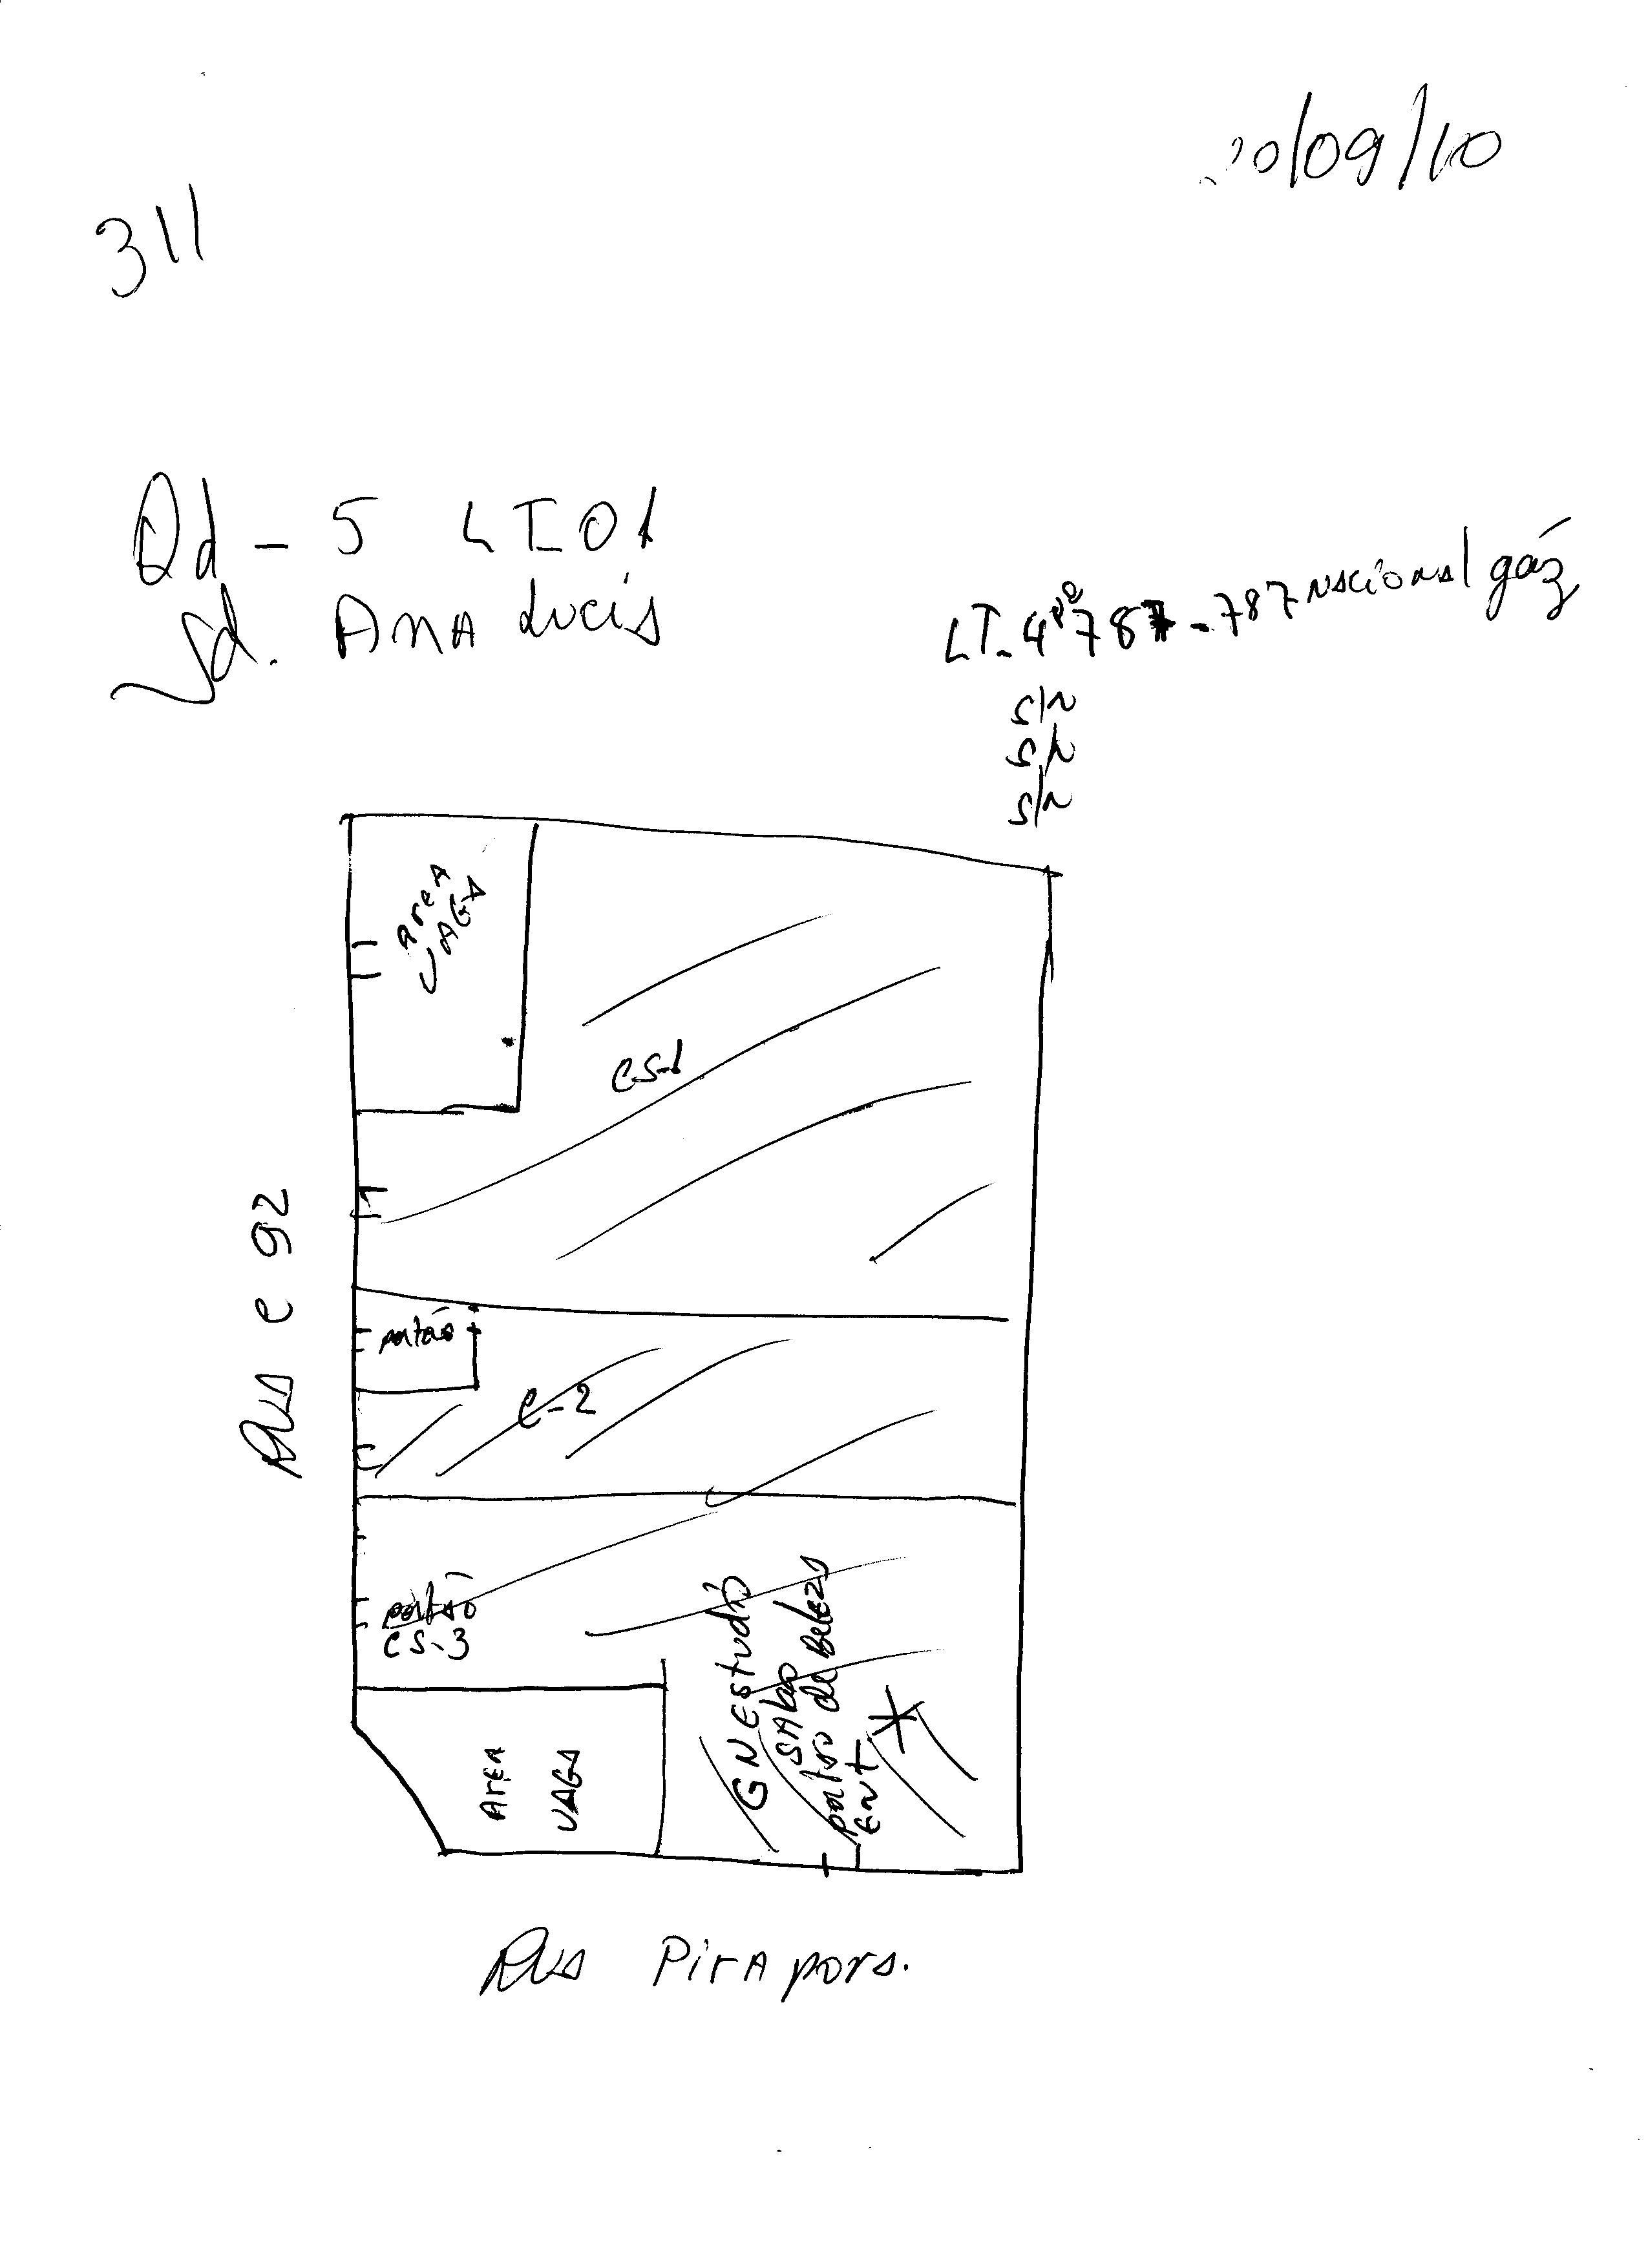 311
20/09/10
Qd - 5 LT-01
Jd. Ana Lucia
LT-4 nº 787 - 787 nacional gáz
s/n
s/n
s/n
area
vaga
cs-1
Rua c 92
portão
c-2
portão
cs-3
GN Estudio
salão
de Beleza
portão
ent
area
vaga
Rua Pirapora.